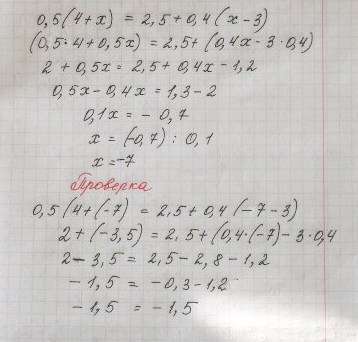 0,5(4+x) = 2,5+0,4(x-3)
(0,5·4+0,5x) = 2,5+(0,4x-3·0,4)
2+0,5x = 2,5+0,4x-1,2
0,5x-0,4x = 1,3-2
0,1x = -0,7
x = (-0,7) : 0,1
x = -7
Проверка
0,5(4+(-7) = 2,5+0,4(-7-3)
2+(-3,5) = 2,5+(0,4·(-7)-3·0,4
2-3,5 = 2,5-2,8-1,2
-1,5 = -0,3-1,2
-1,5 = -1,5